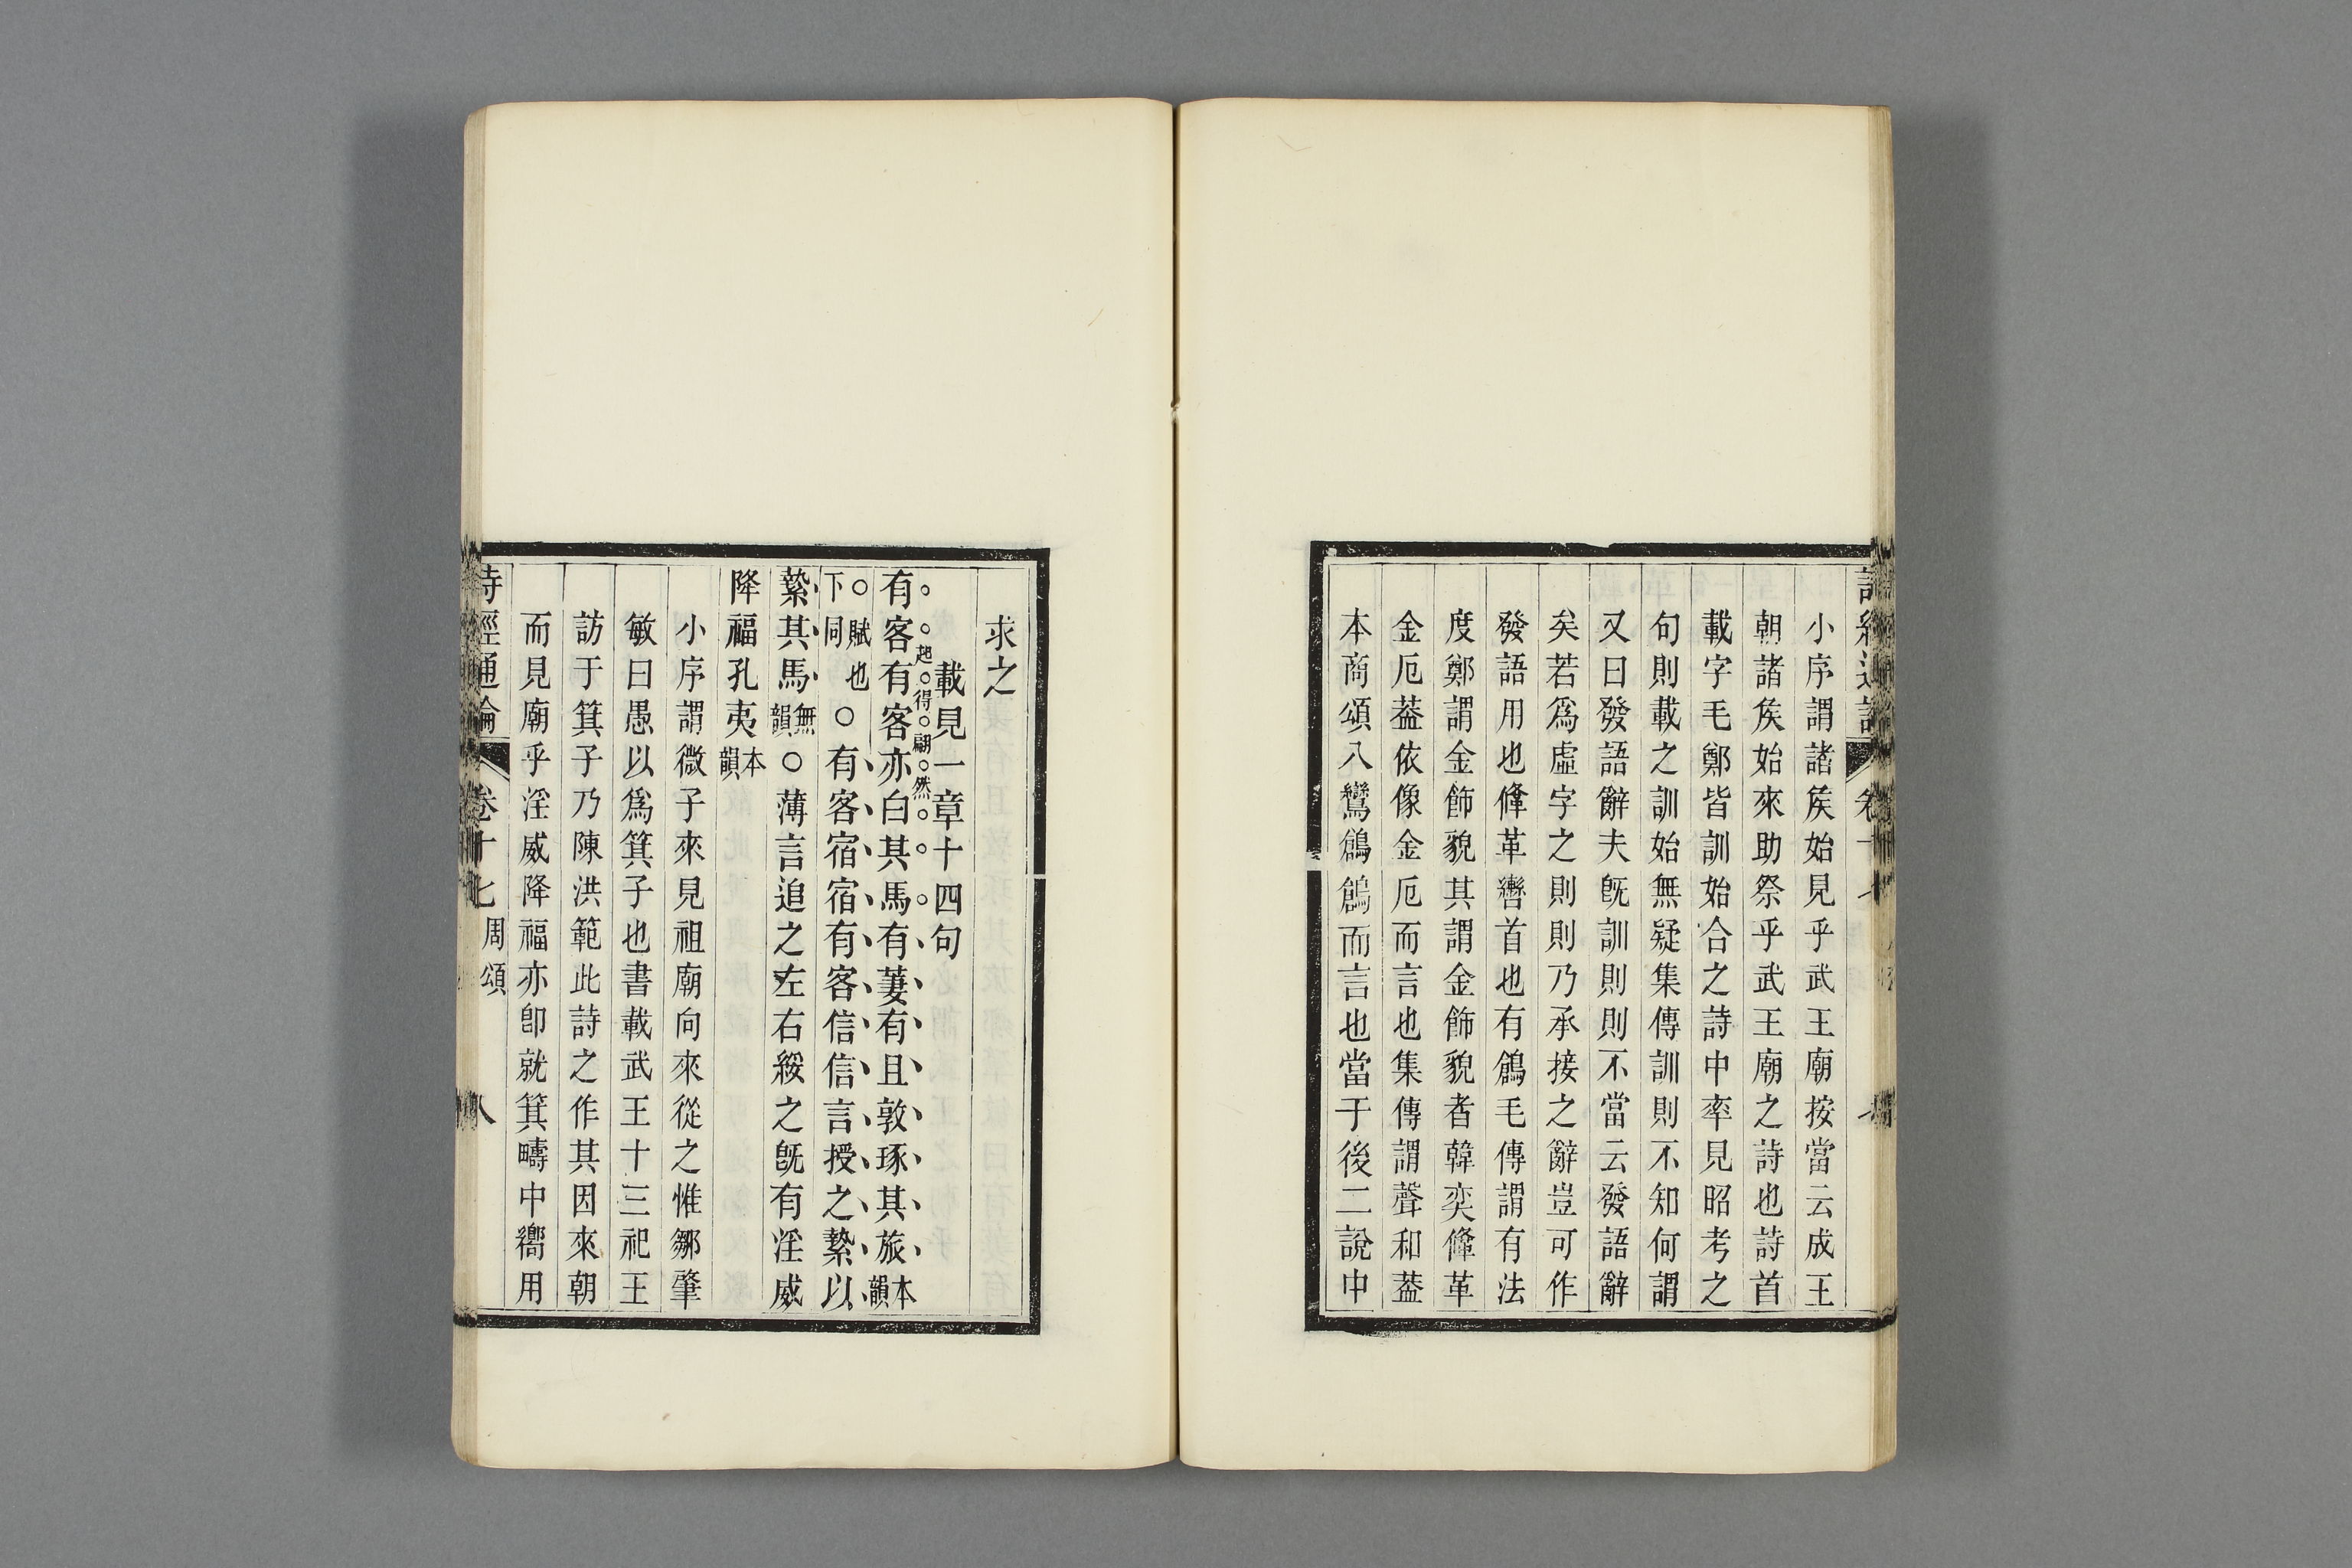 小序謂諸矦始見乎武王廟按當云成王
朝諸矦始來助祭乎武王廟之詩也詩首
載字毛鄭皆訓始合之詩中率見昭考之
句則載之訓始無疑集傳訓則不知何謂
又曰發語辭夫旣訓則則不當云發語辭
矣若爲虛字之則則乃承接之辭豈可作
發語用也鞗革轡首也有鶬毛傳謂有法
度鄭謂金飾貌其謂金飾貌者韓奕鞗革
金厄葢依像金厄而言也集傳謂聲和葢
本商頌八鸞鶬鶬而言也當于後二說中
求之
載見一章十四句
有客有客亦白其馬有萋有且敦琢其旅本韻
起得翩然
○賦也下同○有客宿宿有客信信言授之縶以
縶其馬無韻○薄言追之左右綏之旣有淫威
降福孔夷本韻
小序謂微子來見祖廟向來從之惟鄒肇
敏曰愚以爲箕子也書載武王十三祀王
訪于箕子乃陳洪範此詩之作其因來朝
而見廟乎淫威降福亦卽就箕疇中嚮用
詩經通論 卷十七 周頌 八